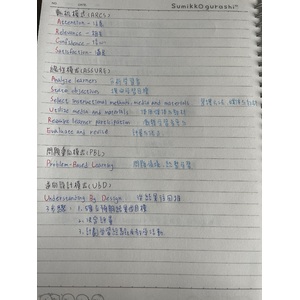 NO. DATE SumikkOgurashi™
動機模式(ARCS)
Attention - 注意
Relevance - 相關
Confidence - 信心
Satisfaction - 滿足
系統模式(ASSURE)
Analyze learners 分析學習者
State objectives 撰寫學習目標
Select instructional methods, media and materials 選擇方法、媒體與教材
Utilize media and materials 使用媒體與教材
Require learner participation 激發學習者參與
Evaluate and revise 評量與修正
問題導向模式(PBL)
Problem-Based Learning
逆向設計模式(UbD)
Understanding By Design
3步驟: 1.確立預期學習目標
2.決定評量
3.計劃學習經驗與教學活動